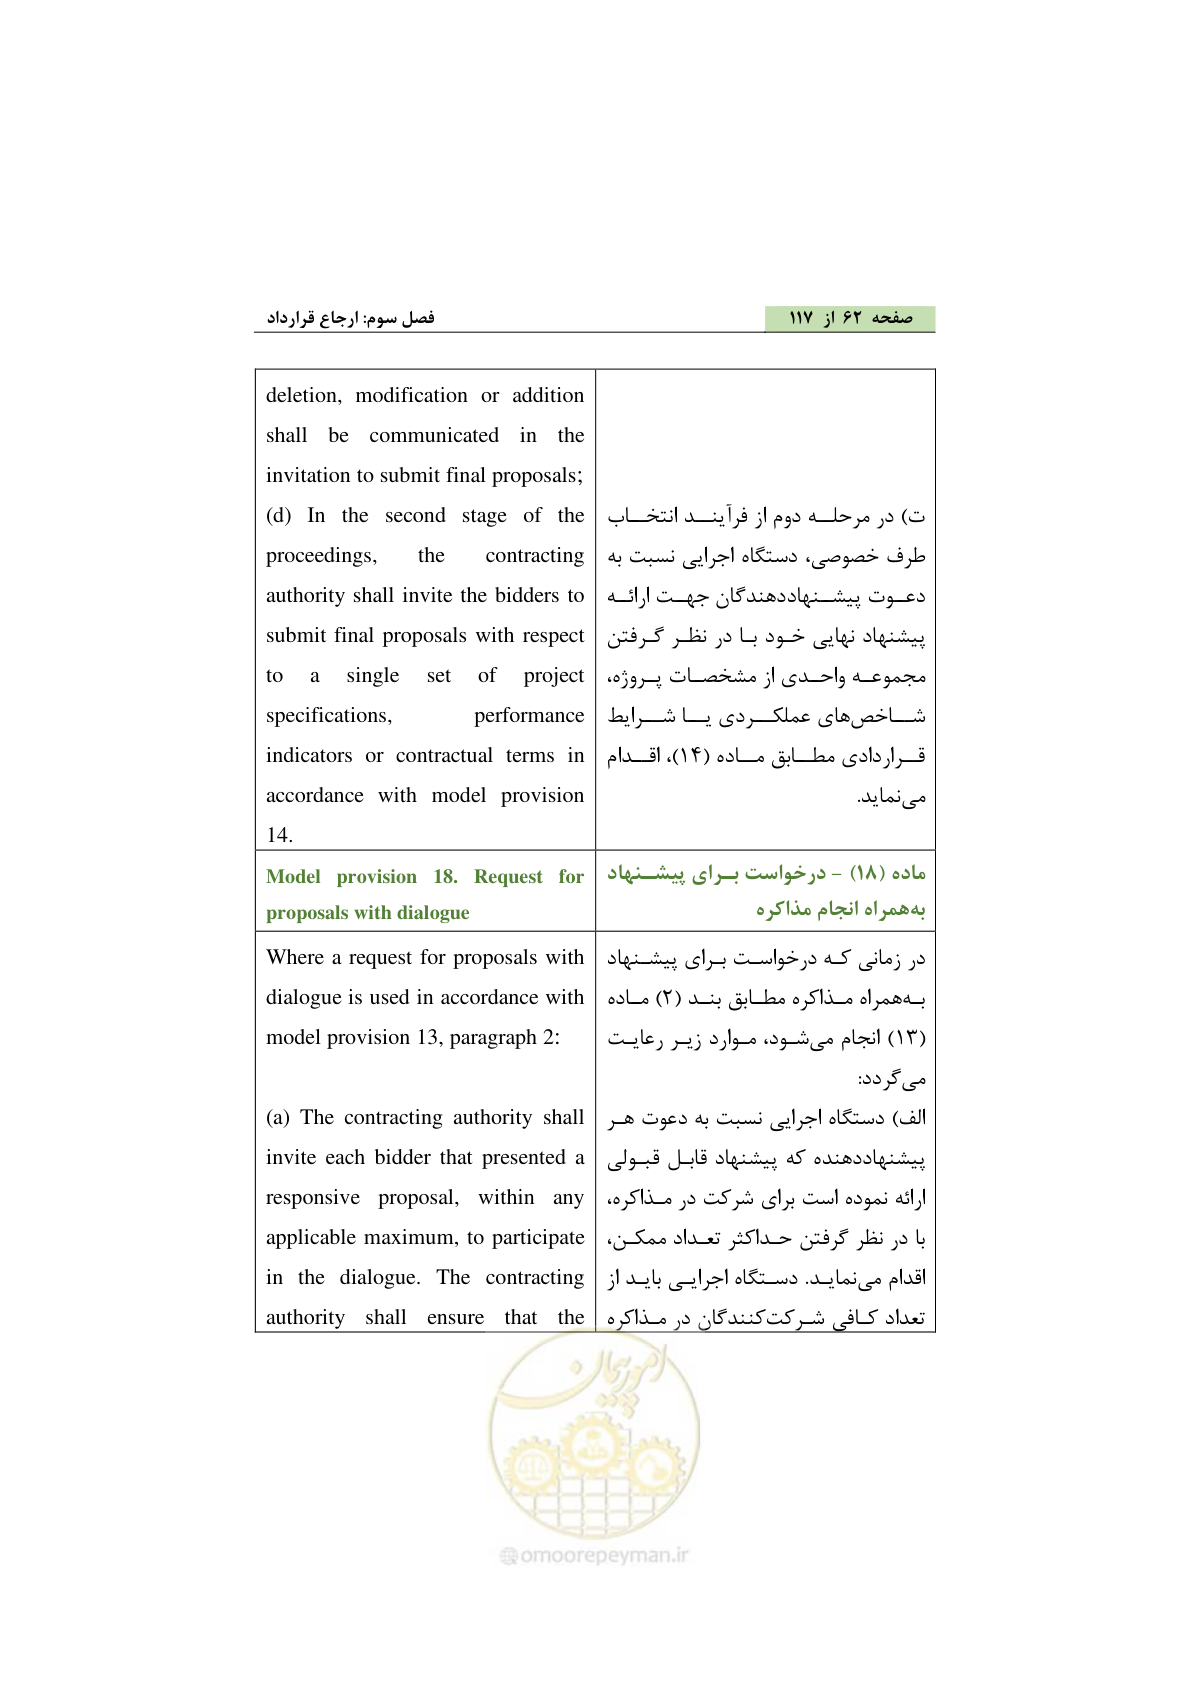 صفحه ۶۲ از ۱۱۷
فصل سوم: ارجاع قرارداد
deletion, modification or addition
shall be communicated in the
invitation to submit final proposals;
(d) In the second stage of the
proceedings, the contracting
authority shall invite the bidders to
submit final proposals with respect
to a single set of project
specifications, performance
indicators or contractual terms in
accordance with model provision
14.
ت) در مرحله دوم از فرآیند انتخاب
طرف خصوصی، دستگاه اجرایی نسبت به
دعوت پیشنهاددهندگان جهت ارائه
پیشنهاد نهایی خود با در نظر گرفتن
مجموعه واحدی از مشخصات پروژه،
شاخص‌های عملکردی یا شرایط
قراردادی مطابق ماده (۱۴)، اقدام
می‌نماید.
Model provision 18. Request for
proposals with dialogue
ماده (۱۸) – درخواست برای پیشنهاد
به‌همراه انجام مذاکره
Where a request for proposals with
dialogue is used in accordance with
model provision 13, paragraph 2:
(a) The contracting authority shall
invite each bidder that presented a
responsive proposal, within any
applicable maximum, to participate
in the dialogue. The contracting
authority shall ensure that the
در زمانی که درخواست برای پیشنهاد
به‌همراه مذاکره مطابق بند (۲) ماده
(۱۳) انجام می‌شود، موارد زیر رعایت
می‌گردد:
الف) دستگاه اجرایی نسبت به دعوت هر
پیشنهاددهنده که پیشنهاد قابل قبولی
ارائه نموده است برای شرکت در مذاکره،
با در نظر گرفتن حداکثر تعداد ممکن،
اقدام می‌نماید. دستگاه اجرایی باید از
تعداد کافی شرکت‌کنندگان در مذاکره
امور پیمان
@omoorepeyman.ir